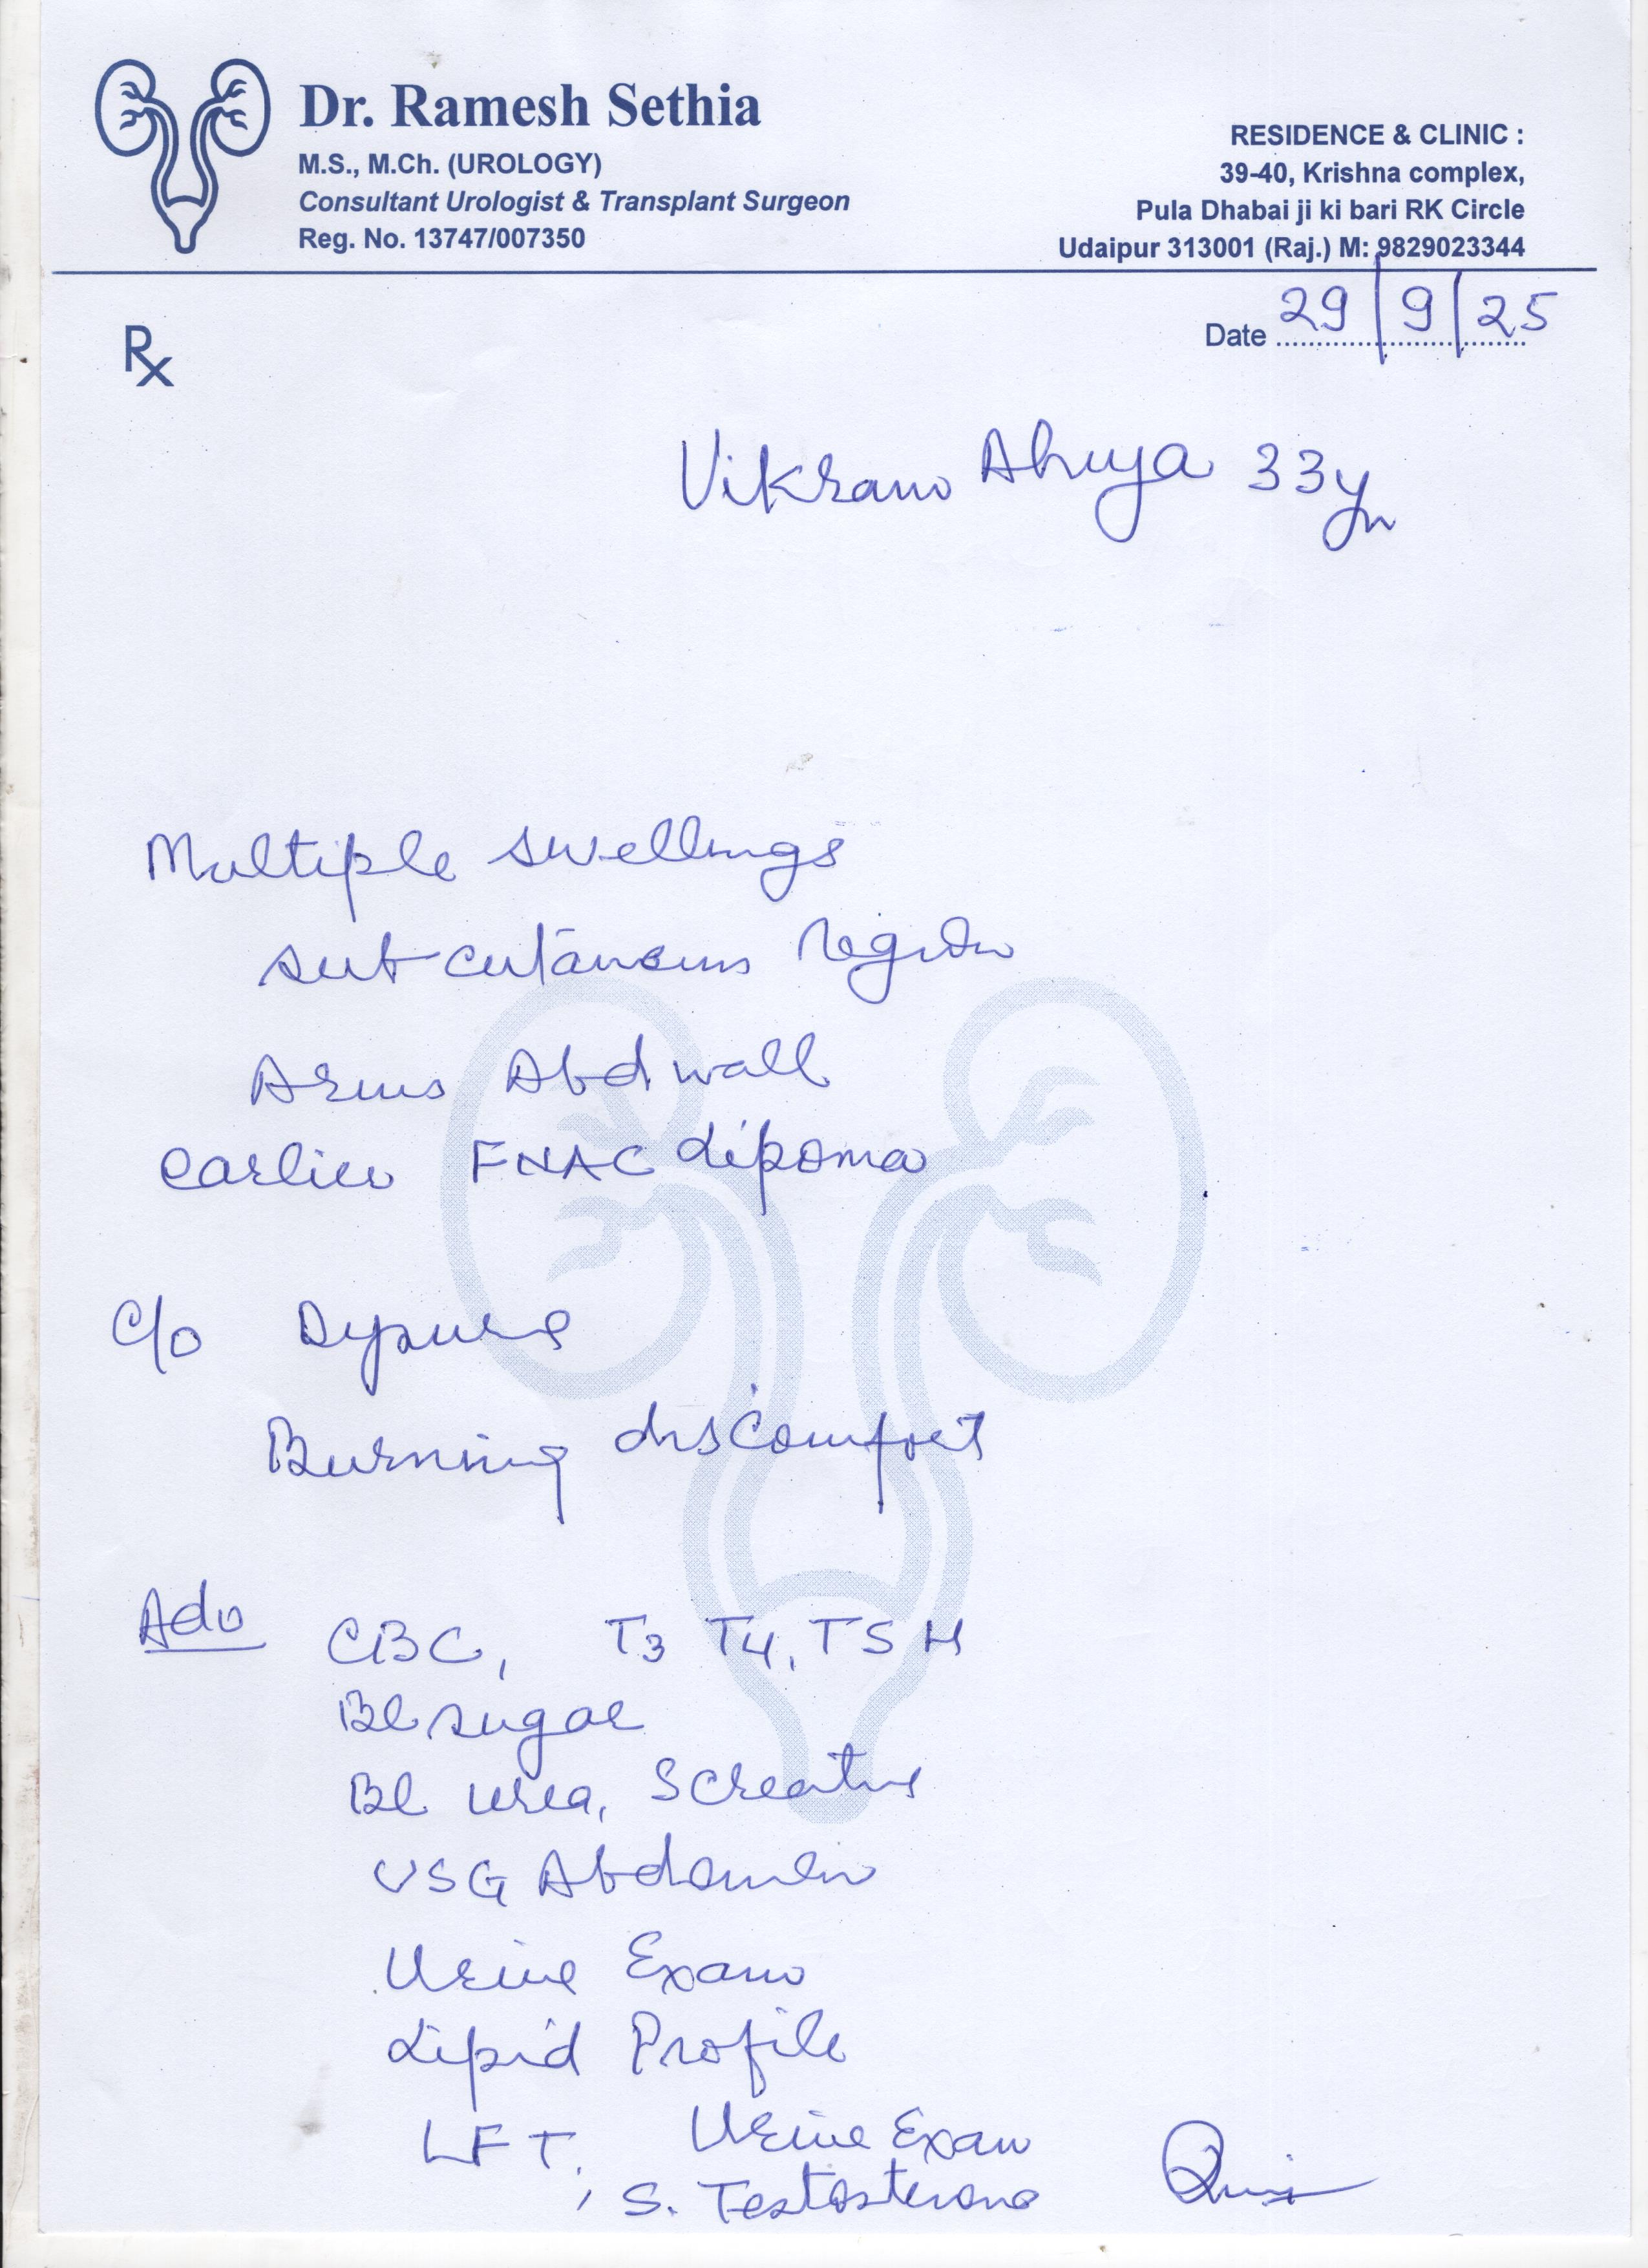 Dr. Ramesh Sethia
M.S., M.Ch. (UROLOGY)
Consultant Urologist & Transplant Surgeon
Reg. No. 13747/007350
RESIDENCE & CLINIC :
39-40, Krishna complex,
Pula Dhabai ji ki bari RK Circle
Udaipur 313001 (Raj.) M: 9829023344
Date 29/9/25
Rx
Vikram Ahuja 33yr
Multiple swellings
subcutaneous region
Arms Abd wall
earlier FNAC Lipoma
C/o Dysuria
Burning discomfort
Adv CBC, T3 T4, TSH
Bl sugar
Bl urea, S creatine
USG Abdomen
Urine Exam
Lipid Profile
LFT, Urine Exam
, S. Testosterone